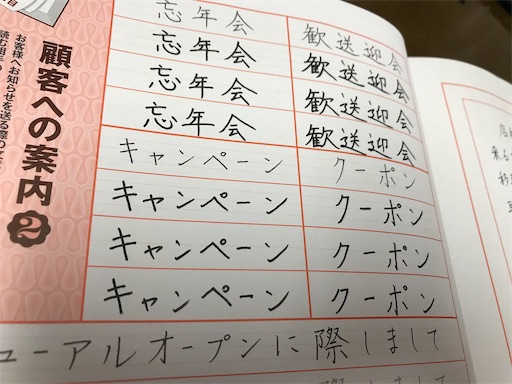 顧客への案内2
お客様へお知らせを送る際の
忘年会 歓送迎会
忘年会 歓送迎会
忘年会 歓送迎会
忘年会 歓送迎会
キャンペーン クーポン
キャンペーン クーポン
キャンペーン クーポン
キャンペーン クーポン
ューアルオープンに際しまして